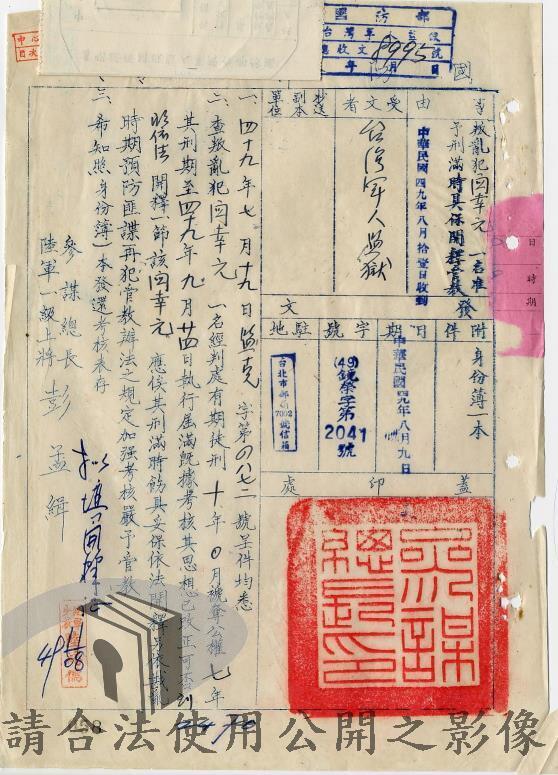 國防部
台灣軍
總收文 8995 號
年 月 日
國
事由
叛亂犯囚幸元一名准
予刑滿時具保開釋管教
受文者
台灣軍人監獄
抄送副本單位
中華民國四九年八月拾壹日收到
發文
附件
身份簿一本
日期
中華民國四九年八月九日
字號
(49)鏡榮字第
2041
號
駐地
台北市郵
7002
號信箱
蓋印處
參謀總長印
一、四十九年七月十九日監克字第四八七二號呈件均悉
二、查叛亂犯囚幸元一名經判處有期徒刑十年〇月褫奪公權七年
其刑期至四十九年九月廿四日執行屆滿既據考核其思想已改正可否
開釋一節該囚幸元應俟其刑滿時飭具妥保依法開釋
時期預防匪諜再犯管教辦法之規定加強考核嚴予管教
三、希知照身份簿一本發還考核表存
參謀總長
陸軍一級上將 彭孟緝
11/08
日
時
期
請合法使用公開之影像